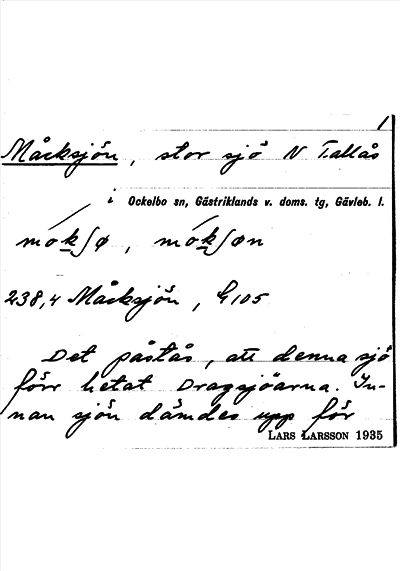 1
Måcksjön, stor sjö N Tallås
i Ockelbo sn, Gästriklands v. doms. tg, Gävleb. l.
mókʃø, mókʃøn
238,4 Måcksjön, G 105
Det påstås, att denna sjö
förr hetat Dragsjöarna. In-
nan sjön dämdes upp för
LARS LARSSON 1935